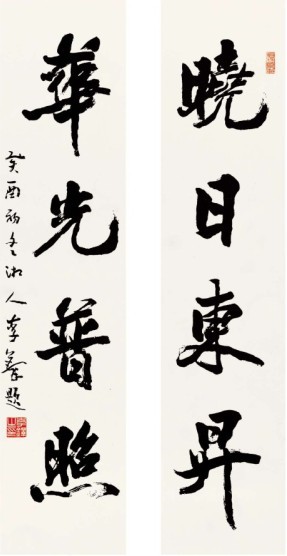 曉日東昇
華光普照
癸酉初冬湘人李鐸題